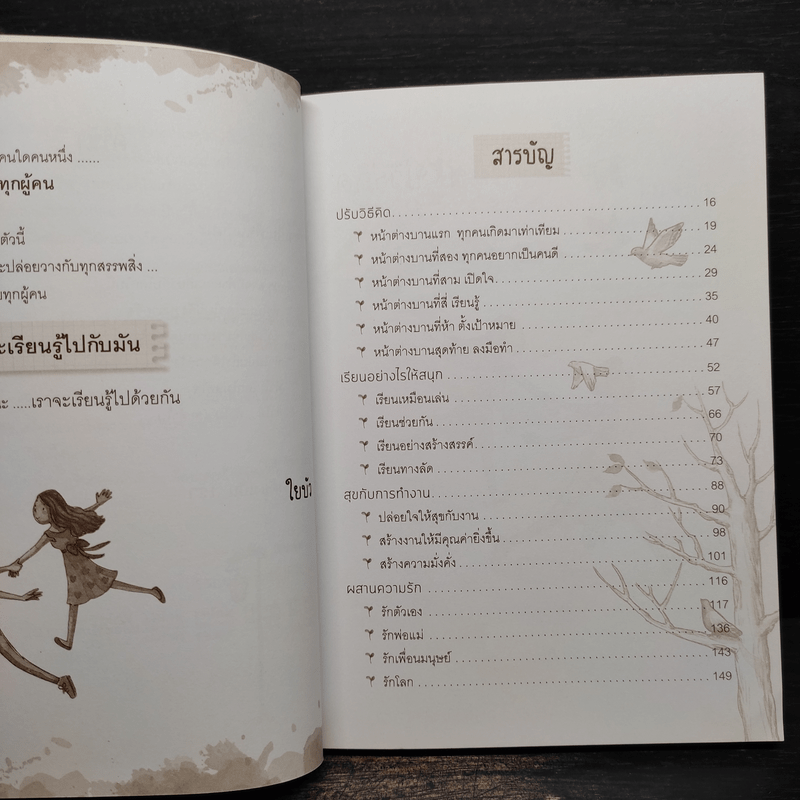 คนใดคนหนึ่ง ......
ทุกผู้คน
ตัวนี้
ะปล่อยวางกับทุกสรรพสิ่ง ...
ทุกผู้คน
ะเรียนรู้ไปกับมัน
นะ .....เราจะเรียนรู้ไปด้วยกัน
ใยบัว
สารบัญ
ปรับวิธีคิด 16
หน้าต่างบานแรก ทุกคนเกิดมาเท่าเทียม 19
หน้าต่างบานที่สอง ทุกคนอยากเป็นคนดี 24
หน้าต่างบานที่สาม เปิดใจ 29
หน้าต่างบานที่สี่ เรียนรู้ 35
หน้าต่างบานที่ห้า ตั้งเป้าหมาย 40
หน้าต่างบานสุดท้าย ลงมือทำ 47
เรียนอย่างไรให้สนุก 52
เรียนเหมือนเล่น 57
เรียนช่วยกัน 66
เรียนอย่างสร้างสรรค์ 70
เรียนทางลัด 73
สุขกับการทำงาน 88
ปล่อยใจให้สุขกับงาน 90
สร้างงานให้มีคุณค่ายิ่งขึ้น 98
สร้างความมั่งคั่ง 101
ผสานความรัก 116
รักตัวเอง 117
รักพ่อแม่ 136
รักเพื่อนมนุษย์ 143
รักโลก 149